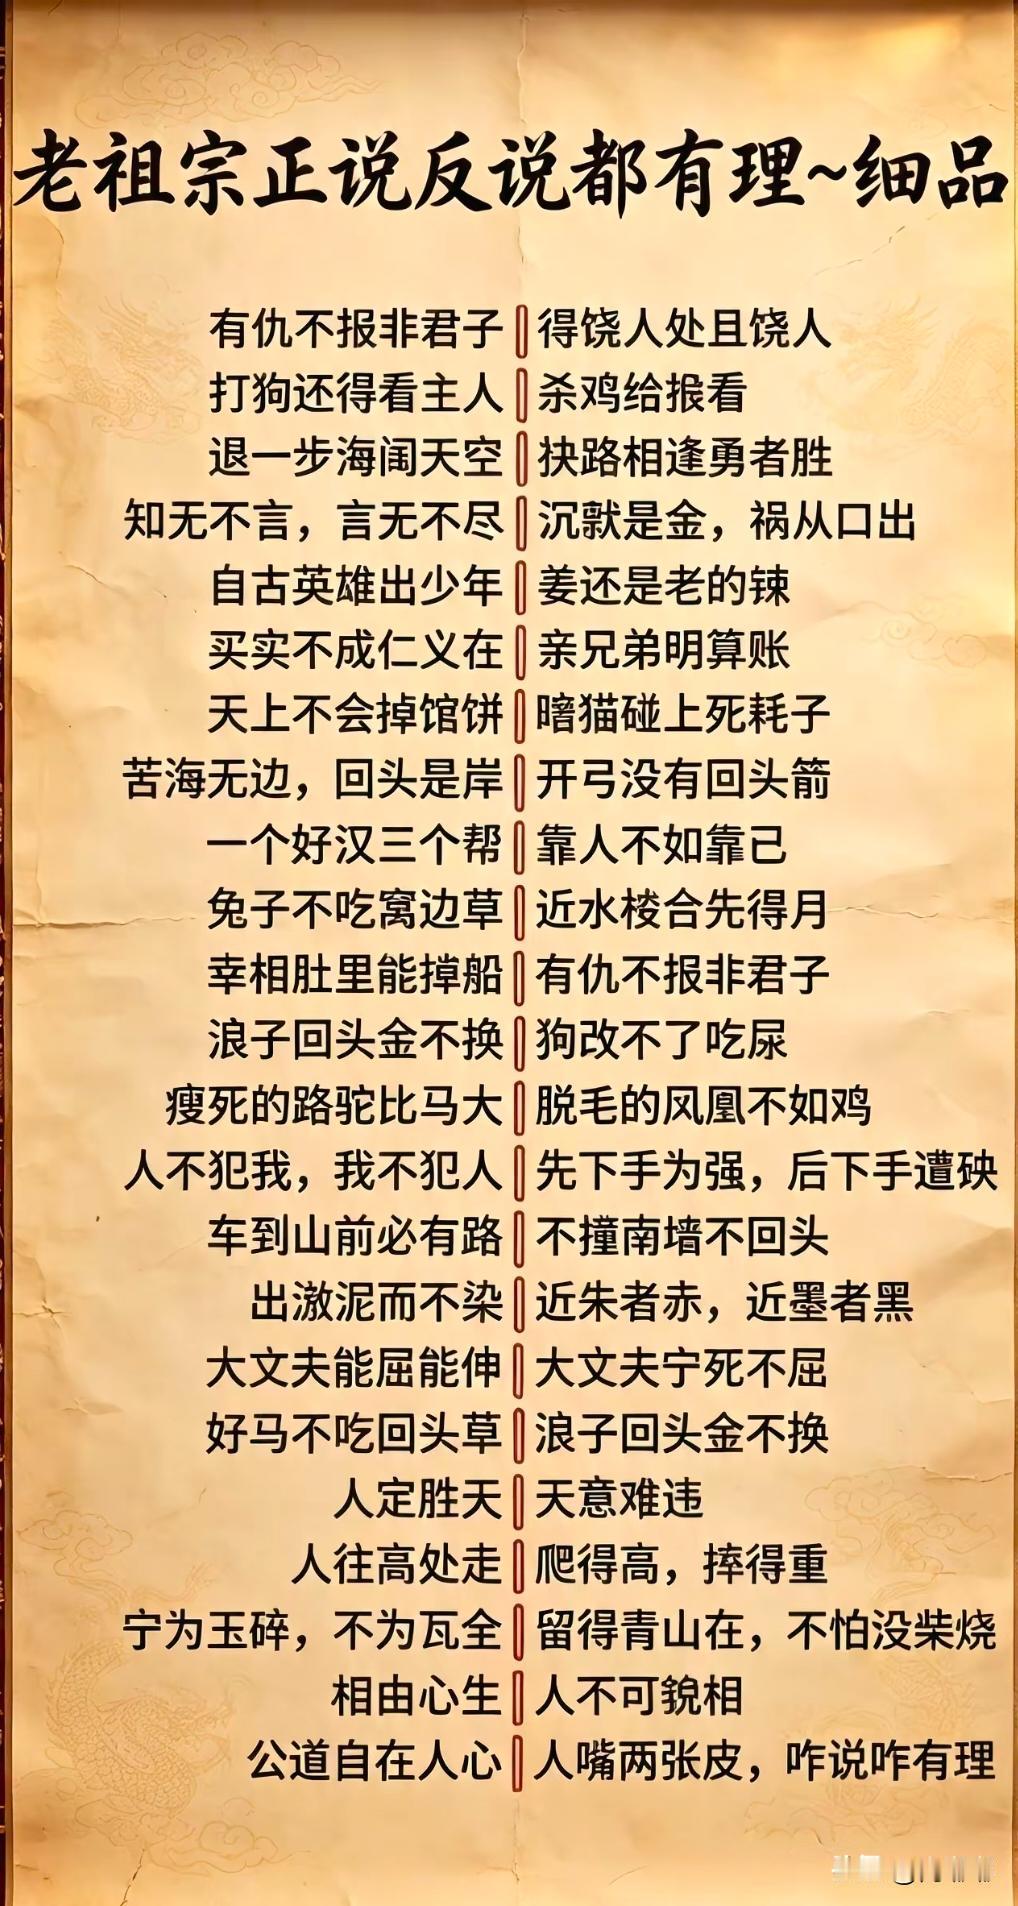 老祖宗正说反说都有理~细品
有仇不报非君子 得饶人处且饶人
打狗还得看主人 杀鸡给猴看
退一步海阔天空 抉路相逢勇者胜
知无不言，言无不尽 沉默是金，祸从口出
自古英雄出少年 姜还是老的辣
买实不成仁义在 亲兄弟明算账
天上不会掉馅饼 瞎猫碰上死耗子
苦海无边，回头是岸 开弓没有回头箭
一个好汉三个帮 靠人不如靠已
兔子不吃窝边草 近水楼台先得月
幸相肚里能撑船 有仇不报非君子
浪子回头金不换 狗改不了吃尿
瘦死的路驼比马大 脱毛的凤凰不如鸡
人不犯我，我不犯人 先下手为强，后下手遭殃
车到山前必有路 不撞南墙不回头
出激泥而不染 近朱者赤，近墨者黑
大文夫能屈能伸 大文夫宁死不屈
好马不吃回头草 浪子回头金不换
人定胜天 天意难违
人往高处走 爬得高，摔得重
宁为玉碎，不为瓦全 留得青山在，不怕没柴烧
相由心生 人不可貌相
公道自在人心 人嘴两张皮，咋说咋有理